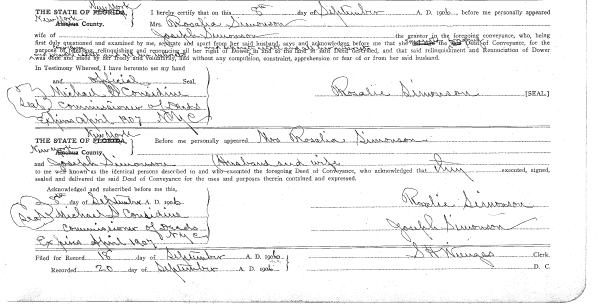 New York
THE STATE OF FLORIDA, I hereby certify that on this day of September A. D. 1906, before me personally appeared
New York
Alachua County. Mrs. Rosalie Simonson
wife of Joseph Simonson the grantor in the foregoing conveyance, who, being
first duly questioned and examined by me, separate and apart from her said husband, says and acknowledges before me that she said Deed of Conveyance, for the
purpose of relinquishing and renouncing all her right of Dower in and to the land in said Deed described, and that said relinquishment and Renunciation of Dower
was done and made by her freely and voluntarily, and without any compulsion, constraint, apprehension or fear of or from her said husband.
In Testimony Whereof, I have hereunto set my hand
and official Seal.
Michael D Considine
Seal Commissioner of Deeds
Expires April 1907 NYC
Rosalie Simonson [SEAL]
New York
THE STATE OF FLORIDA, Before me personally appeared Mrs Rosalie Simonson
New York
Alachua County.
and Joseph Simonson (Husband and wife
to me well known as the identical persons described in and who executed the foregoing Deed of Conveyance, who acknowledged that they executed, signed,
sealed and delivered the said Deed of Conveyance for the uses and purposes therein contained and expressed.
Acknowledged and subscribed before me this,
day of September A. D. 1906
Seal Michael D Considine
Commissioner of Deeds
NYC
Expires April 1907
Rosalie Simonson
Joseph Simonson
Filed for Record 18 day of September A. D. 1906
Clerk.
Recorded 20 day of September A. D. 1906
D. C.